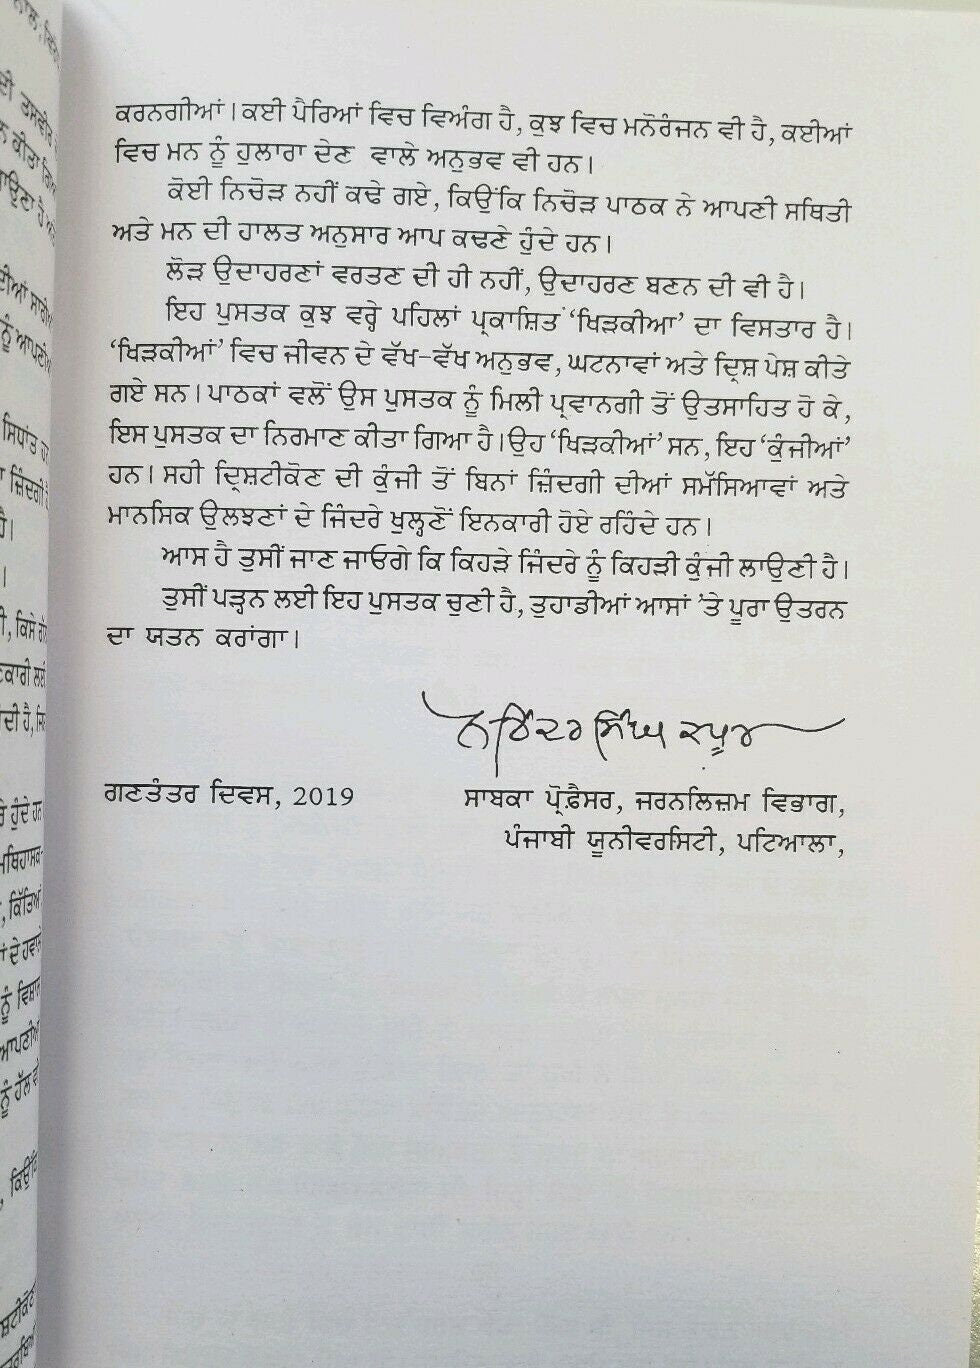 ਕਰਨਗੀਆਂ। ਕਈ ਪੈਰਿਆਂ ਵਿਚ ਵਿਅੰਗ ਹੈ, ਕੁਝ ਵਿਚ ਮਨੋਰੰਜਨ ਵੀ ਹੈ, ਕਈਆਂ
ਵਿਚ ਮਨ ਨੂੰ ਹੁਲਾਰਾ ਦੇਣ ਵਾਲੇ ਅਨੁਭਵ ਵੀ ਹਨ।
ਕੋਈ ਨਿਚੋੜ ਨਹੀਂ ਕਢੇ ਗਏ, ਕਿਉਂਕਿ ਨਿਚੋੜ ਪਾਠਕ ਨੇ ਆਪਣੀ ਸਥਿਤੀ
ਅਤੇ ਮਨ ਦੀ ਹਾਲਤ ਅਨੁਸਾਰ ਆਪ ਕਢਣੇ ਹੁੰਦੇ ਹਨ।
ਲੋੜ ਉਦਾਹਰਣਾਂ ਵਰਤਣ ਦੀ ਹੀ ਨਹੀਂ, ਉਦਾਹਰਣ ਬਣਨ ਦੀ ਵੀ ਹੈ।
ਇਹ ਪੁਸਤਕ ਕੁਝ ਵਰ੍ਹੇ ਪਹਿਲਾਂ ਪ੍ਰਕਾਸ਼ਿਤ ‘ਖਿੜਕੀਆ’ ਦਾ ਵਿਸਤਾਰ ਹੈ।
‘ਖਿੜਕੀਆਂ’ ਵਿਚ ਜੀਵਨ ਦੇ ਵੱਖ-ਵੱਖ ਅਨੁਭਵ, ਘਟਨਾਵਾਂ ਅਤੇ ਦ੍ਰਿਸ਼ ਪੇਸ਼ ਕੀਤੇ
ਗਏ ਸਨ। ਪਾਠਕਾਂ ਵਲੋਂ ਉਸ ਪੁਸਤਕ ਨੂੰ ਮਿਲੀ ਪ੍ਰਵਾਨਗੀ ਤੋਂ ਉਤਸਾਹਿਤ ਹੋ ਕੇ,
ਇਸ ਪੁਸਤਕ ਦਾ ਨਿਰਮਾਣ ਕੀਤਾ ਗਿਆ ਹੈ। ਉਹ ‘ਖਿੜਕੀਆਂ’ ਸਨ, ਇਹ ‘ਕੁੰਜੀਆਂ’
ਹਨ। ਸਹੀ ਦ੍ਰਿਸ਼ਟੀਕੋਣ ਦੀ ਕੁੰਜੀ ਤੋਂ ਬਿਨਾਂ ਜ਼ਿੰਦਗੀ ਦੀਆਂ ਸਮੱਸਿਆਵਾਂ ਅਤੇ
ਮਾਨਸਿਕ ਉਲਝਣਾਂ ਦੇ ਜਿੰਦਰੇ ਖੁਲ੍ਹਣੋਂ ਇਨਕਾਰੀ ਹੋਏ ਰਹਿੰਦੇ ਹਨ।
ਆਸ ਹੈ ਤੁਸੀਂ ਜਾਣ ਜਾਓਗੇ ਕਿ ਕਿਹੜੇ ਜਿੰਦਰੇ ਨੂੰ ਕਿਹੜੀ ਕੁੰਜੀ ਲਾਉਣੀ ਹੈ।
ਤੁਸੀਂ ਪੜ੍ਹਨ ਲਈ ਇਹ ਪੁਸਤਕ ਚੁਣੀ ਹੈ, ਤੁਹਾਡੀਆਂ ਆਸਾਂ ’ਤੇ ਪੂਰਾ ਉਤਰਨ
ਦਾ ਯਤਨ ਕਰਾਂਗਾ।
ਨਰਿੰਦਰ ਸਿੰਘ ਕਪੂਰ
ਗਣਤੰਤਰ ਦਿਵਸ, 2019
ਸਾਬਕਾ ਪ੍ਰੋਫ਼ੈਸਰ, ਜਰਨਲਿਜ਼ਮ ਵਿਭਾਗ,
ਪੰਜਾਬੀ ਯੂਨੀਵਰਸਿਟੀ, ਪਟਿਆਲਾ,